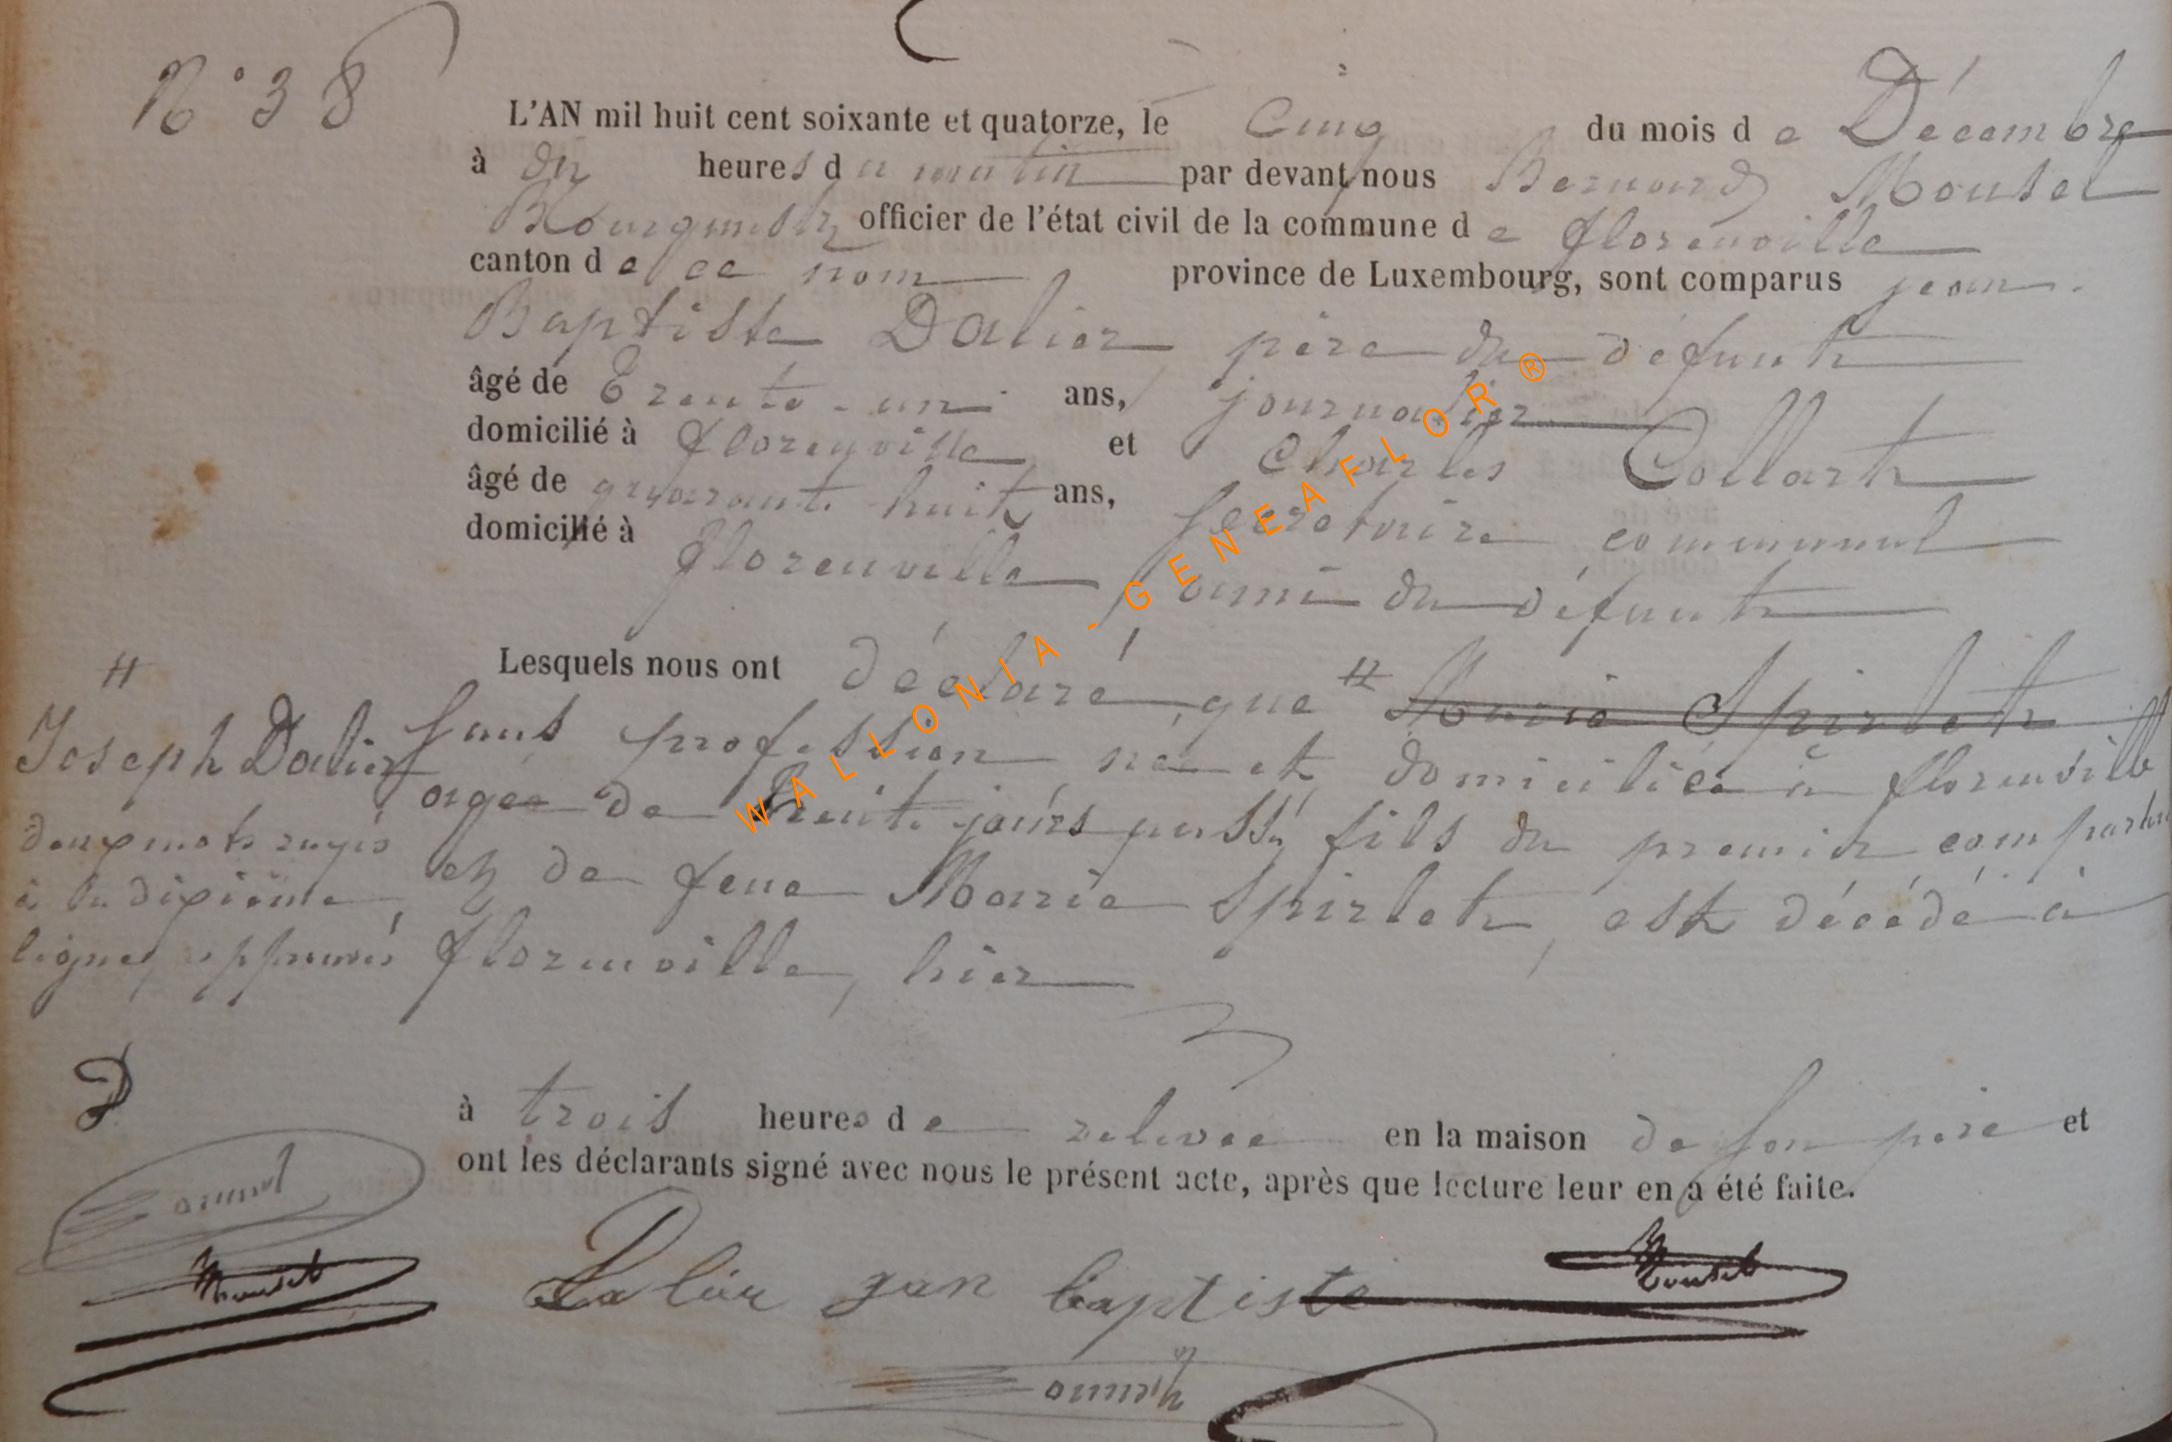 N° 38
L'AN mil huit cent soixante et quatorze, le Cinq du mois de Décembre
à dix heures du matin par devant nous Bernard Mousel
Bourgmestre officier de l'état civil de la commune de florenville
canton de ce nom province de Luxembourg, sont comparus jean
Baptiste Dalier père du défunt
âgé de Trente-un ans, journalier
domicilié à florenville et Charles Collart
âgé de quarante huit ans, Secretaire communal
domicilié à florenville ami du défunt
Lesquels nous ont déclaré que # Marie Spirlet
sans profession né et domicilié à florenville
agée de huit jours passé fils du premier comparant
et de feue Marie Spirlet, est décédé à
florenville, hier
#
Joseph Dalier
deux mots rayés
à la dixième
ligne, approuvés
D
à trois heures de relevée en la maison de son père et
ont les déclarants signé avec nous le présent acte, après que lecture leur en a été faite.
Mousel
Dalier jean baptiste
Mousel
WALLONIA - GENEAFLOR ®